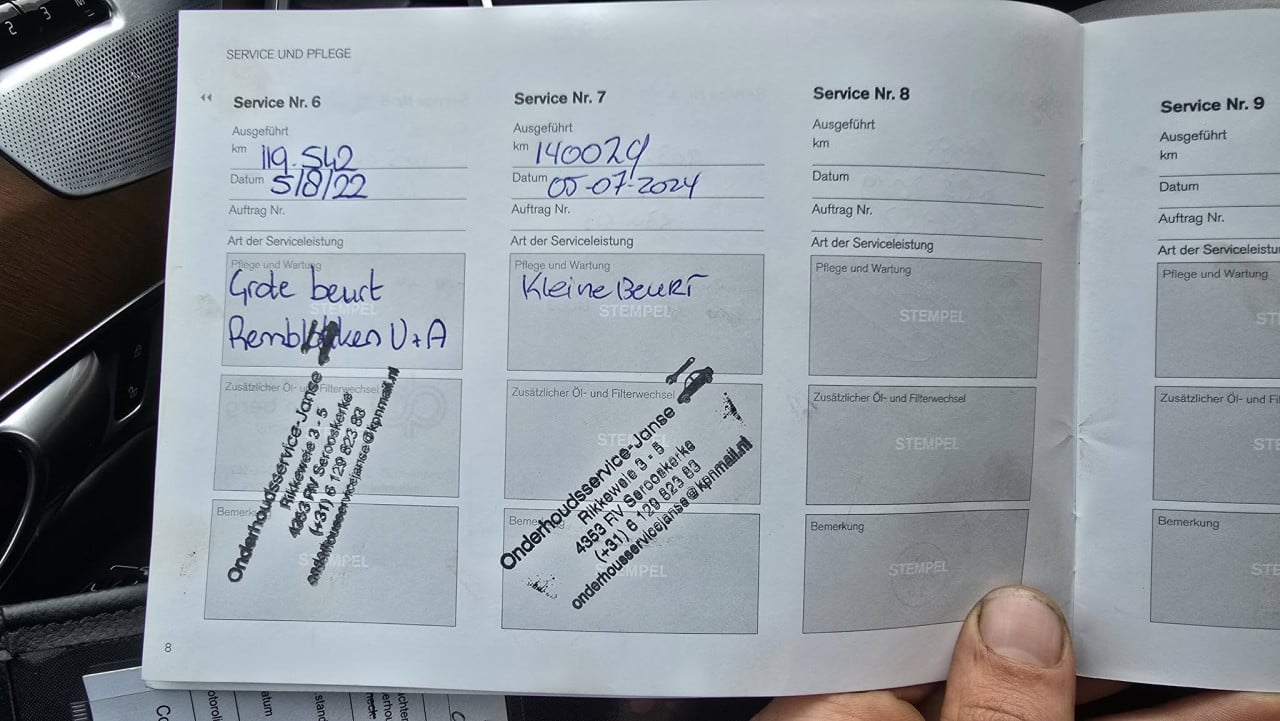 2
3
SERVICE UND PFLEGE
Service Nr. 6
Ausgeführt
km 119.542
Datum 5/8/22
Auftrag Nr.
Art der Serviceleistung
Pflege und Wartung
Grote beurt
STEMPEL
Remblokken V+A
Zusätzlicher Öl- und Filterwechsel
Onderhoudsservice-Janse
Rikkeweie 3 - 5
4353 RV Serooskerke
(+31) 6 129 823 83
onderhoudsservicejanse@kpnmail.nl
STEMPEL
8
Service Nr. 7
Ausgeführt
km 140029
Datum 05-07-2024
Auftrag Nr.
Art der Serviceleistung
Pflege und Wartung
Kleine Beurt
STEMPEL
Zusätzlicher Öl- und Filterwechsel
STEMPEL
Onderhoudsservice-Janse
Rikkeweie 3 - 5
4353 RV Serooskerke
(+31) 6 129 823 83
onderhoudsservicejanse@kpnmail.nl
STEMPEL
Service Nr. 8
Ausgeführt
km
Datum
Auftrag Nr.
Art der Serviceleistung
Pflege und Wartung
STEMPEL
Zusätzlicher Öl- und Filterwechsel
STEMPEL
Bemerkung
STEMPEL
Service Nr. 9
Ausgeführt
km
Datum
Auftrag Nr.
Art der
Pflege und Wartung
Zusätzlicher Öl- und
Bemerkung